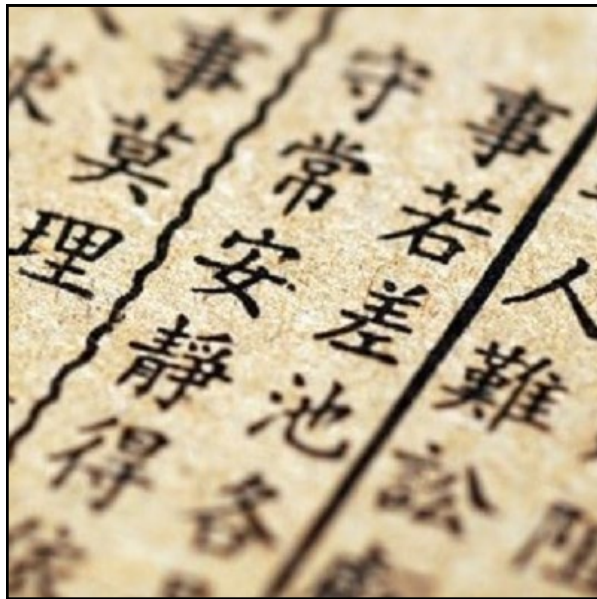 人難訟
事若差池各
守常安靜得
事莫理